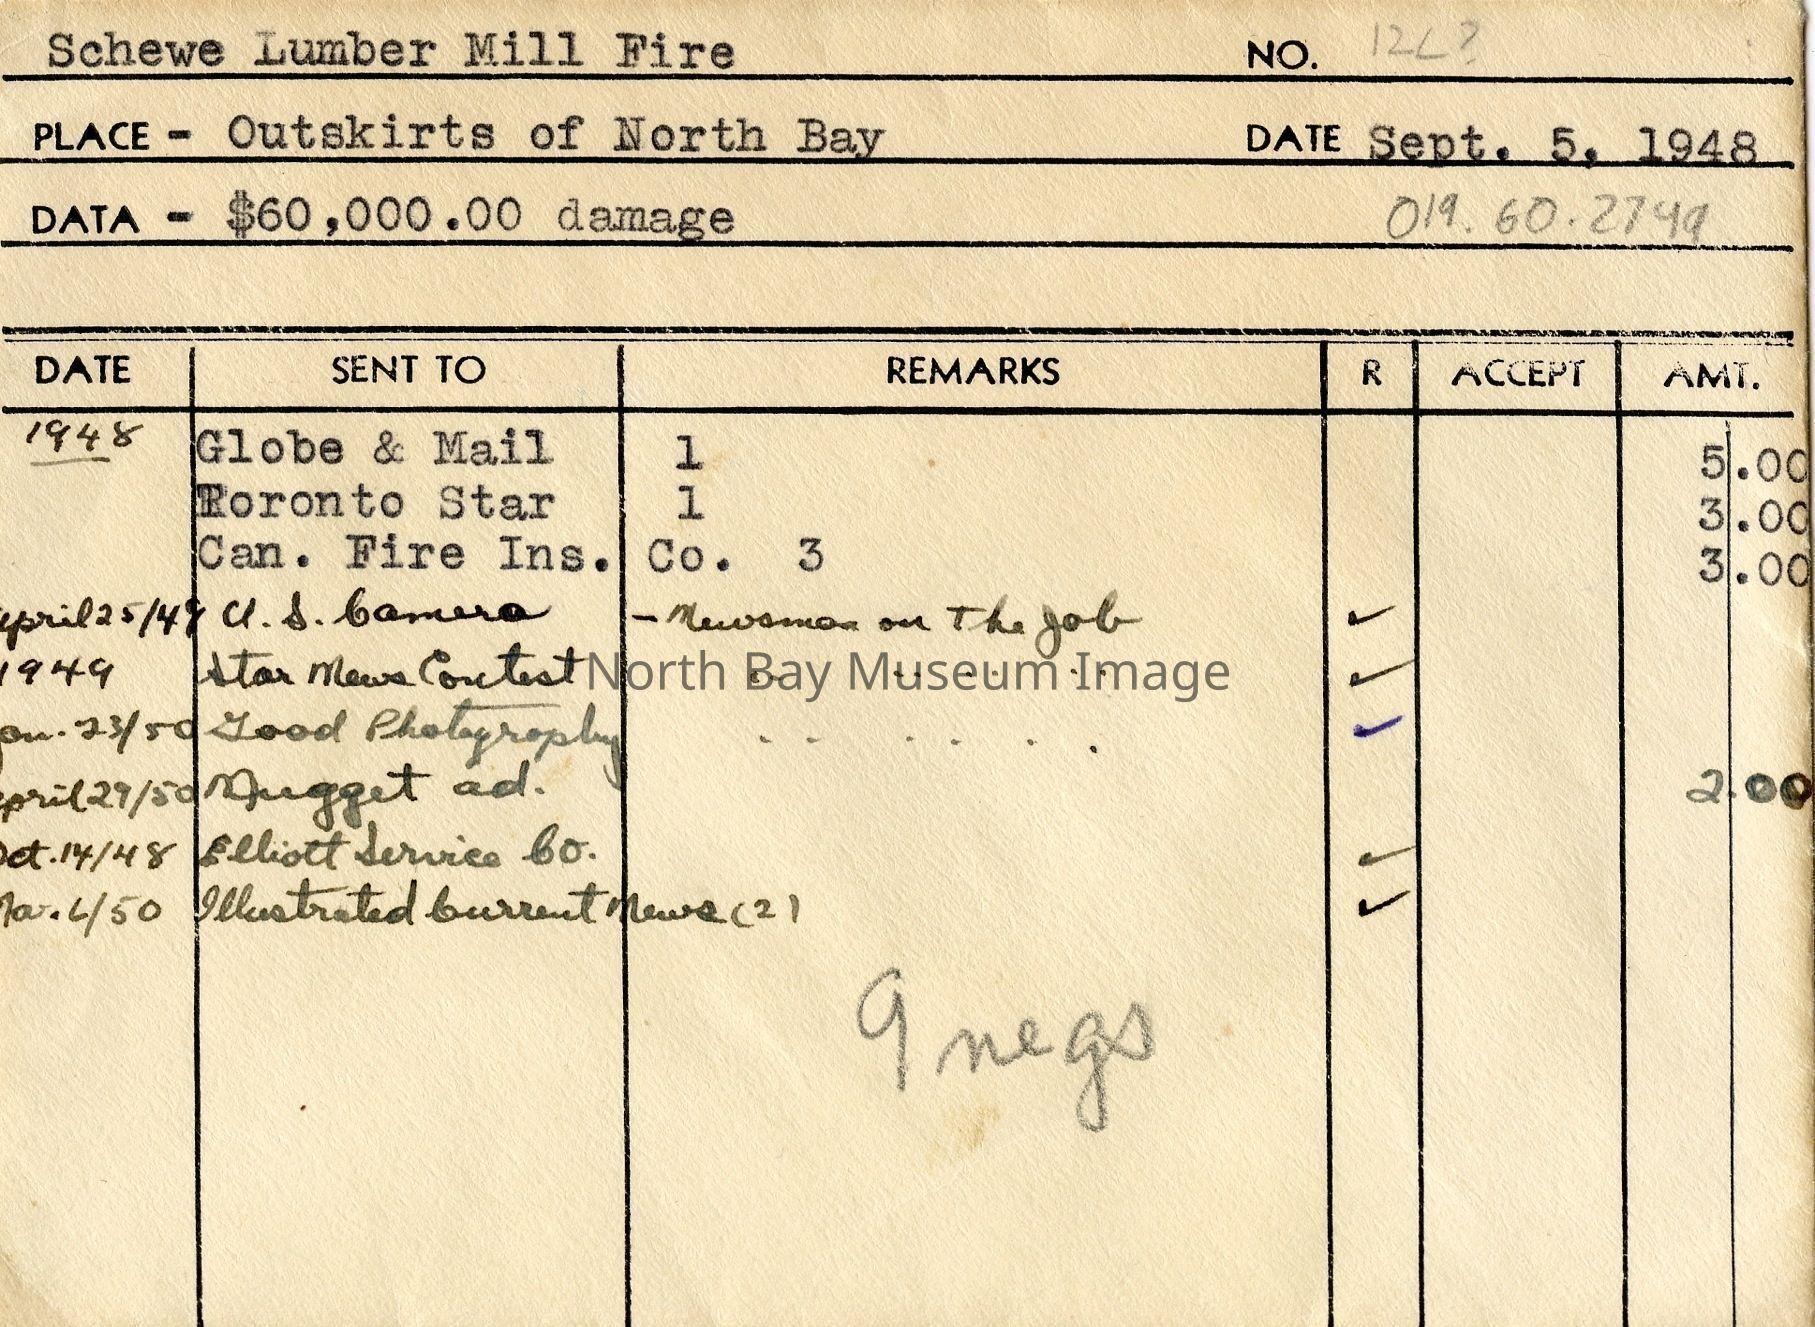 Schewe Lumber Mill Fire NO. 1267
PLACE - Outskirts of North Bay DATE Sept. 5, 1948
DATA - $60,000.00 damage 019.60.2749
DATE SENT TO REMARKS R ACCEPT AMT.
1948 Globe & Mail 1 5.00
Toronto Star 1 3.00
Can. Fire Ins. Co. 3 3.00
April 25/49 U. S. Camera - Newsman on The Job ✓
1949 Star News Contest ✓
North Bay Museum Image
Jan. 23/50 Good Photography ✓
April 29/50 Nugget ad. 2.00
Oct. 14/48 Elliott Service Co. ✓
Mar. 6/50 Illustrated Current News (2) ✓
9 negs